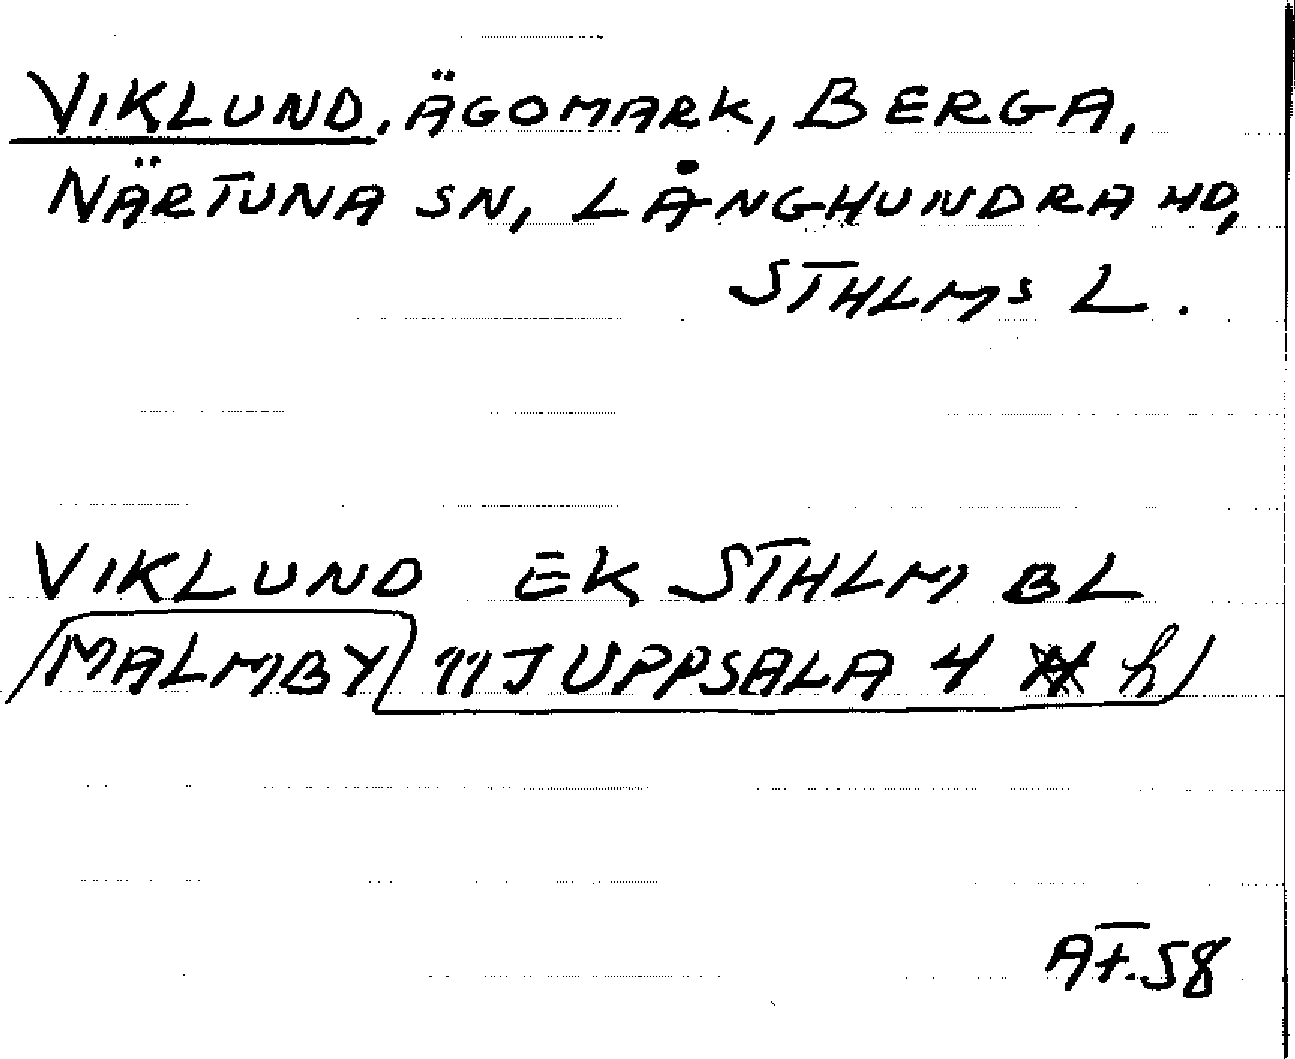 VIKLUND, ÄGOMARK, BERGA,
NÄRTUNA SN, LÅNGHUNDRA HD,
STHLMS L.
VIKLUND EK STHLM BL
MALMBY 11J UPPSALA 4 h
AT.58